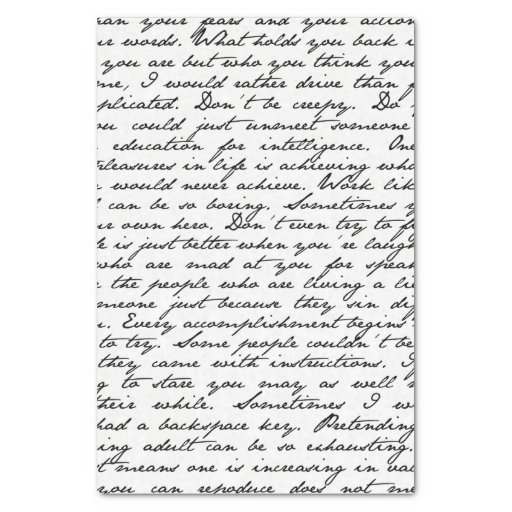 han your fears and your action
r words. What holds you back i
you are but who you think you
me, I would rather drive than f
plicated. Don't be creepy. Do
ou could just unmeet someone
education for intelligence. One
pleasures in life is achieving wha
u would never achieve. Work lik
l can be so boring. Sometimes y
ur own hero. Don't even try to f
le is just better when you're laugh
who are mad at you for speak
e the people who are living a li
meone just because they sin dif
u. Every accomplishment begins
to try. Some people couldn't be
they came with instructions. If
g to stare you may as well m
their while. Sometimes I w
had a backspace key. Pretending
ing adult can be so exhausting.
t means one is increasing in val
you can reproduce does not me